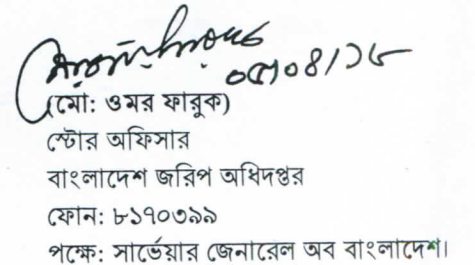 ০৫/০৪/১৮
(মো: ওমর ফারুক)
স্টোর অফিসার
বাংলাদেশ জরিপ অধিদপ্তর
ফোন: ৮১৭০৩৯৯
পক্ষে: সার্ভেয়ার জেনারেল অব বাংলাদেশ।